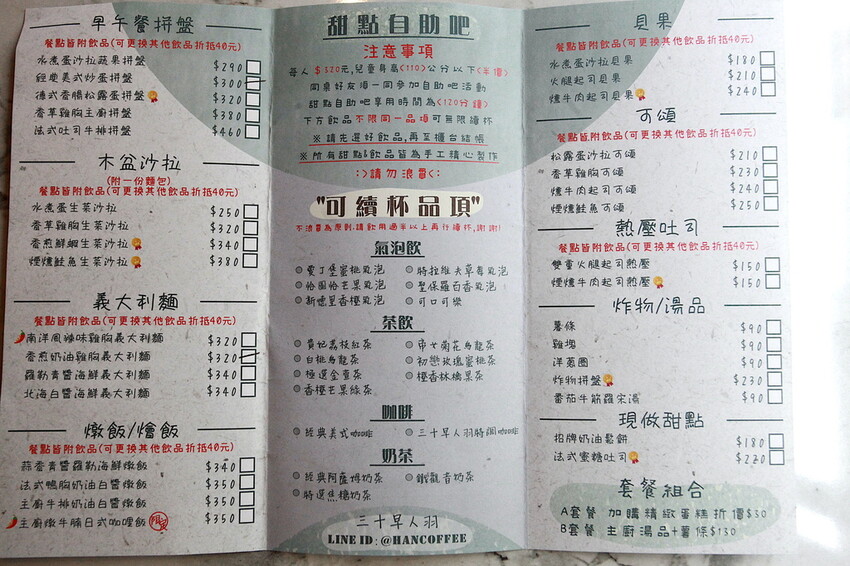 早午餐拼盤
餐點皆附飲品(可更換其他飲品折抵40元)
水煮蛋沙拉蔬果拼盤 $290
經典美式炒蛋拼盤 $300
德式香腸松露蛋拼盤 $320
香草雞胸主廚拼盤 $380
法式吐司牛排拼盤 $460
木盆沙拉
(附一份麵包)
餐點皆附飲品(可更換其他飲品折抵40元)
水煮蛋生菜沙拉 $250
香草雞胸生菜沙拉 $320
香煎鮮蝦生菜沙拉 $340
煙燻鮭魚生菜沙拉 $380
義大利麵
餐點皆附飲品(可更換其他飲品折抵40元)
南洋風辣味雞胸義大利麵 $320
香煎奶油雞胸義大利麵 $320
羅勒青醬海鮮義大利麵 $340
北海白醬海鮮義大利麵 $340
燉飯/燴飯
餐點皆附飲品(可更換其他飲品折抵40元)
蒜香青醬羅勒海鮮燉飯 $340
法式鴨胸奶油白醬燉飯 $350
主廚牛排奶油白醬燉飯 $350
主廚燉牛腩日式咖哩飯 $350
甜點自助吧
注意事項
每人$320元,兒童身高<110>公分以下<半價>
同桌好友須一同參加自助吧活動
甜點自助吧享用時間為<120分鐘>
下方飲品不限同一品項可無限續杯
※請先選好飲品,再至櫃台結帳
※所有甜點&飲品皆為手工精心製作
:>請勿浪費<:
"可續杯品項"
不浪費為原則.請飲用過半以上再行續杯,謝謝!
氣泡飲
墾丁堡蜜桃氣泡
特拉維夫草莓氣泡
恰圖恰芒果氣泡
聖保羅百香氣泡
新德里香橙氣泡
可口可樂
茶飲
貴妃荔枝紅茶
帝女菊花烏龍茶
白桃烏龍茶
初戀玫瑰蜜桃茶
極選金萱茶
橙香林檎果茶
香橙芒果綠茶
咖啡
經典美式咖啡
三十早人羽特調咖啡
奶茶
經典阿薩姆奶茶
鐵觀音奶茶
特選焦糖奶茶
三十早人羽
LINE ID:@HANCOFFEE
貝果
餐點皆附飲品(可更換其他飲品折抵40元)
水煮蛋沙拉貝果 $180
火腿起司貝果 $210
燻牛肉起司貝果 $240
可頌
餐點皆附飲品(可更換其他飲品折抵40元)
松露蛋沙拉可頌 $210
香草雞胸可頌 $230
燻牛肉起司可頌 $240
煙燻鮭魚可頌 $250
熱壓吐司
餐點皆附飲品(可更換其他飲品折抵40元)
雙重火腿起司熱壓 $150
煙燻牛肉起司熱壓 $150
炸物/湯品
薯條 $90
雞塊 $90
洋蔥圈 $90
炸物拼盤 $230
番茄牛筋羅宋湯 $90
現做甜點
招牌奶油鬆餅 $180
法式蜜糖吐司 $220
套餐組合
A套餐 加購精緻蛋糕折價$30
B套餐 主廚湯品+薯條$130